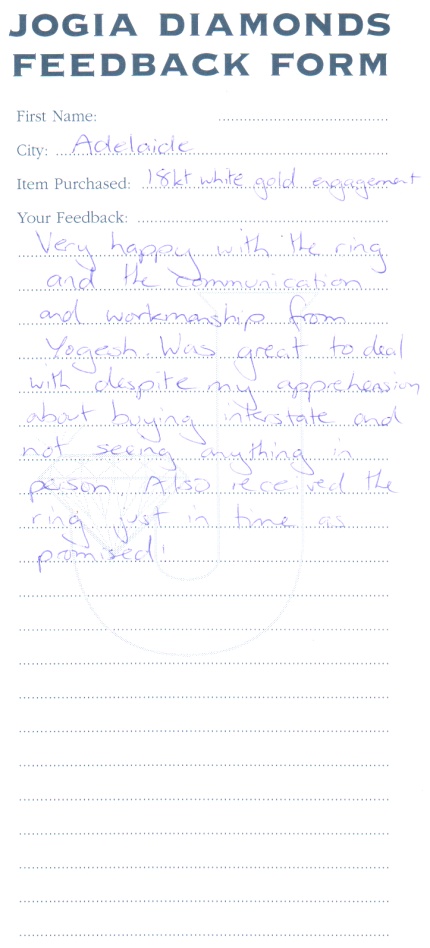 JOGIA DIAMONDS
FEEDBACK FORM
First Name:
City: Adelaide
Item Purchased: 18kt white gold engagement
Your Feedback:
Very happy with the ring
and the communication
and workmanship from
Yogesh. Was great to deal
with despite my apprehension
about buying interstate and
not seeing anything in
person. Also received the
ring just in time as
promised!